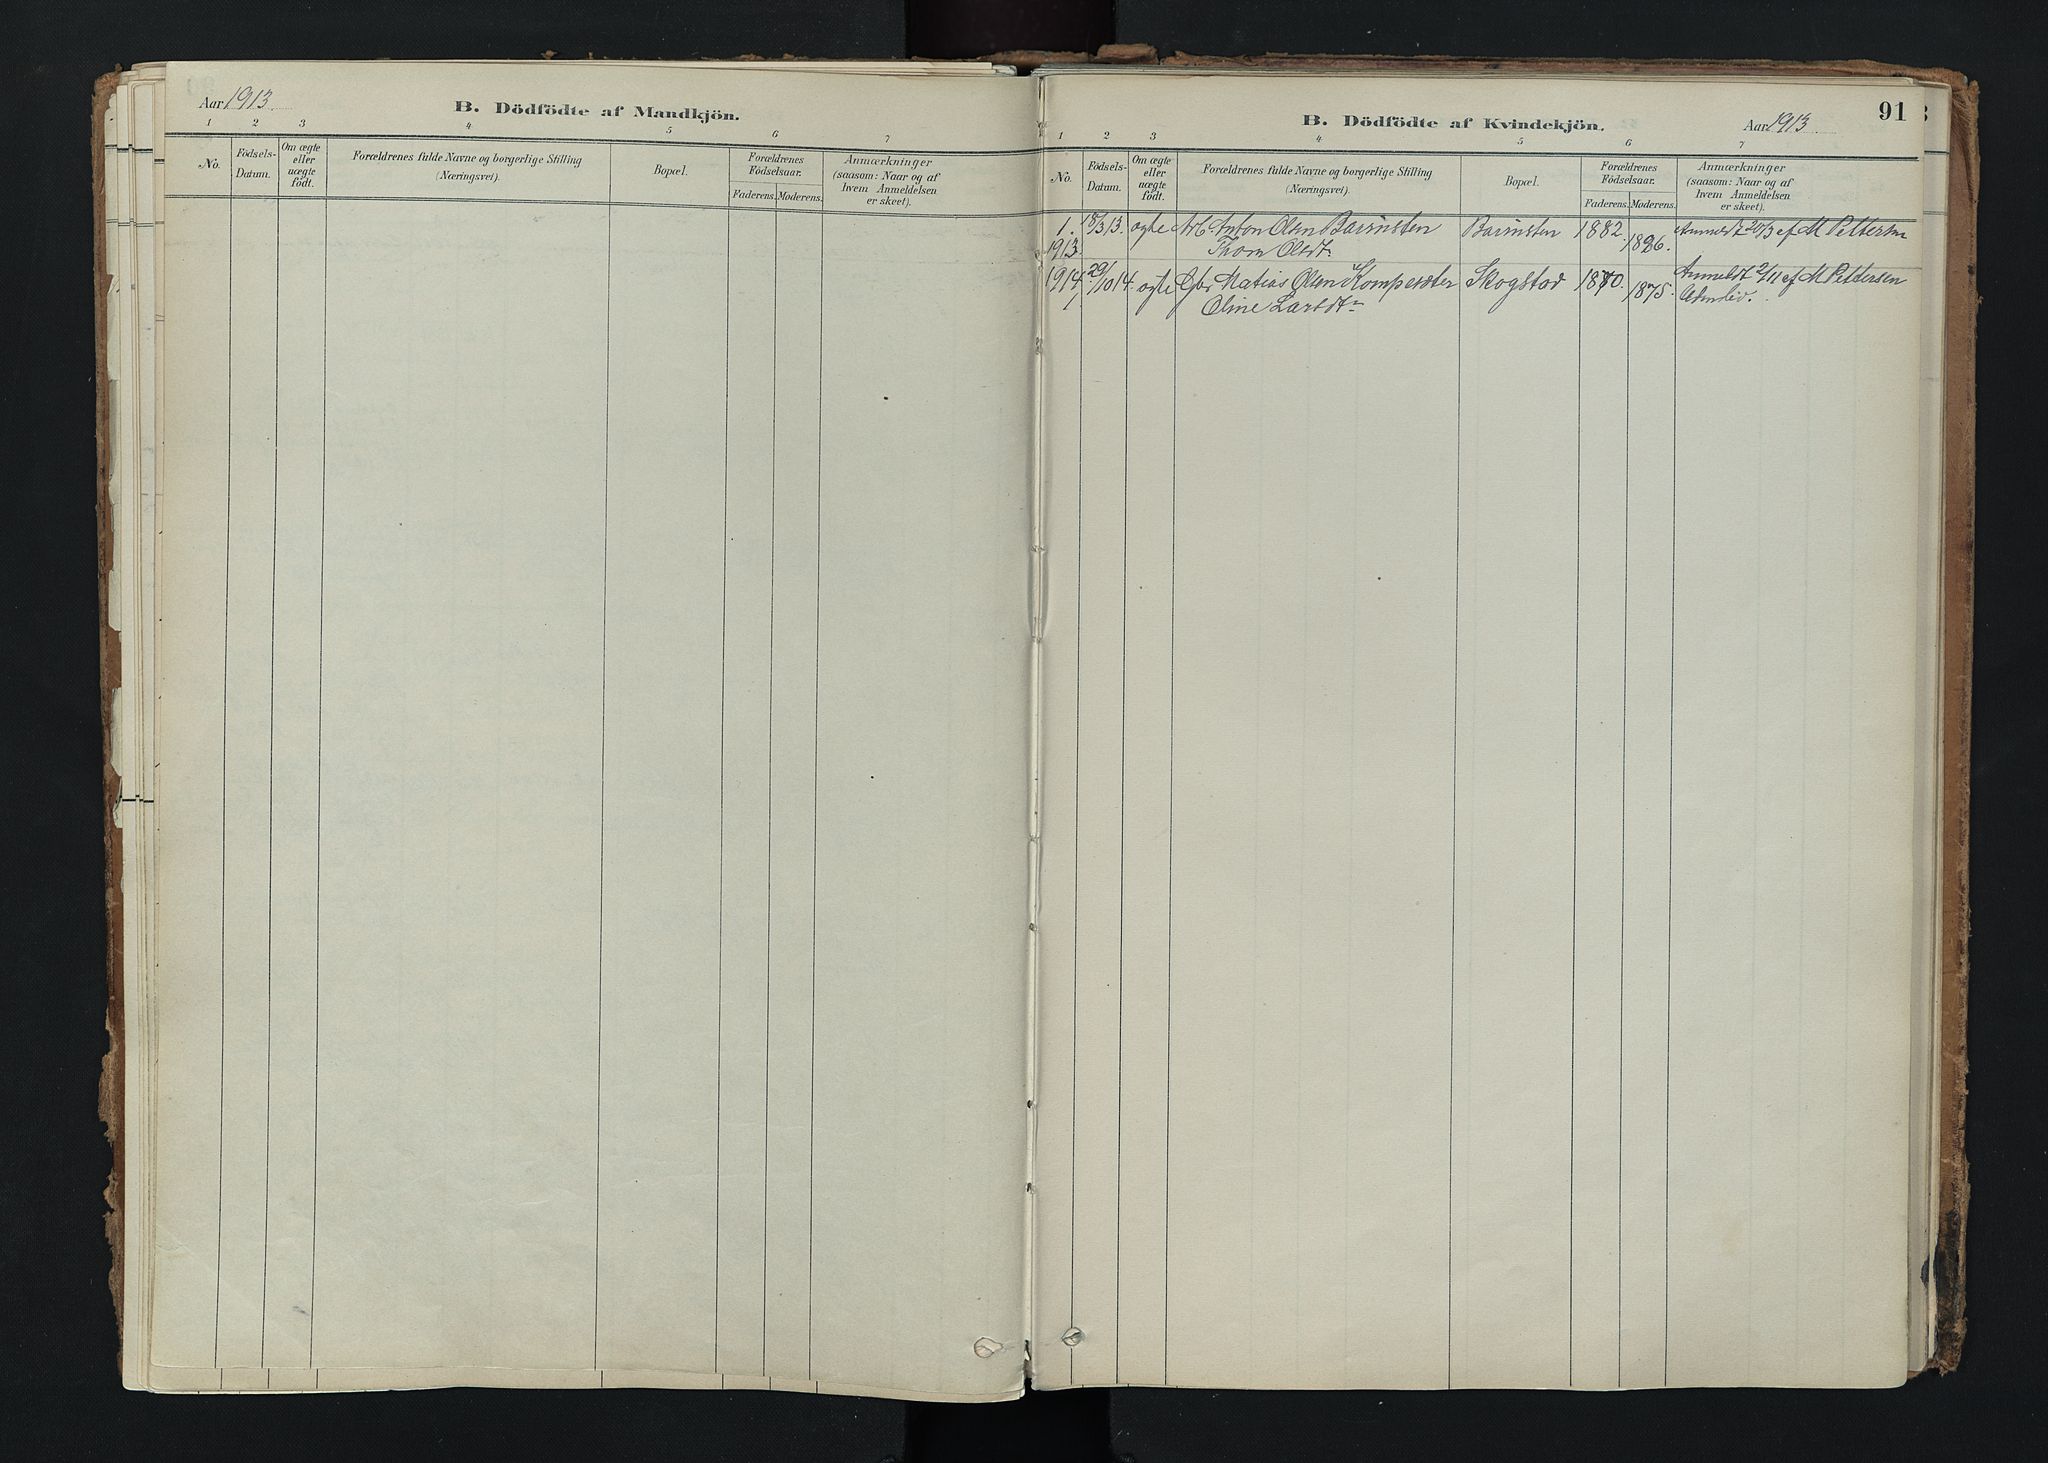 Aar 1913
B. Dödfödte af Mandkjön.
1 2 3 4 5 6 7
No. Födsels-Datum. Om ægte eller uægte födt. Forældrenes fulde Navne og borgerlige Stilling (Næringsvei). Bopæl. Forældrenes Födselsaar. Faderens. Moderens. Anmærkninger (saasom: Naar og af hvem Anmeldelsen er skeet).
91
B. Dödfödte af Kvindekjön.
Aar 1913
1 2 3 4 5 6 7
No. Födsels-Datum. Om ægte eller uægte födt. Forældrenes fulde Navne og borgerlige Stilling (Næringsvei). Bopæl. Forældrenes Födselsaar. Faderens. Moderens. Anmærkninger (saasom: Naar og af hvem Anmeldelsen er skeet).
1. 18/3 13. ogte Arb. Anton Olsen 1882. Anmeldt 20/3 af M Pettersen
1913. Olsdt 1886.
1914 29/10 14. ogte Gbr Matias Olsen Skogstad 1870. Anmeldt 2/11 af M Pettersen
1 Oline Larsdtr 1875.